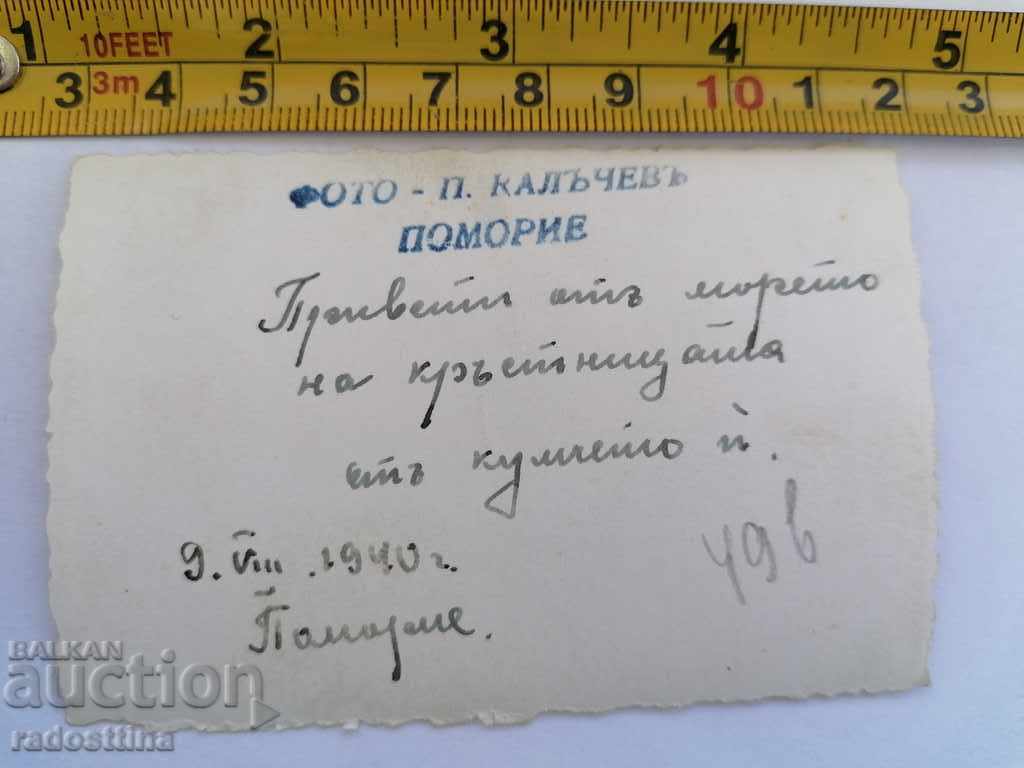 1 10FEET 2 3 4 5
3 3m 4 5 6 7 8 9 10 1 2 3
ФОТО - П. КАЛЪЧЕВЪ
ПОМОРИЕ
Приветъ отъ морето
на кръстницата
отъ кумчето ѝ.
9. VIII. 1940 г.
Поморие.
BALKAN
auction
radosttina